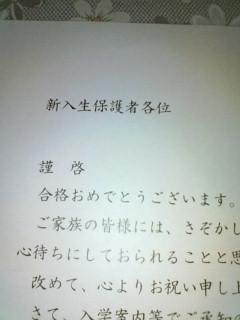 新入生保護者各位
謹 啓
合格おめでとうございます。
ご家族の皆様には、さぞかし
心待ちにしておられることと思
改めて、心よりお祝い申し上
さて、入学案内等でご承知の